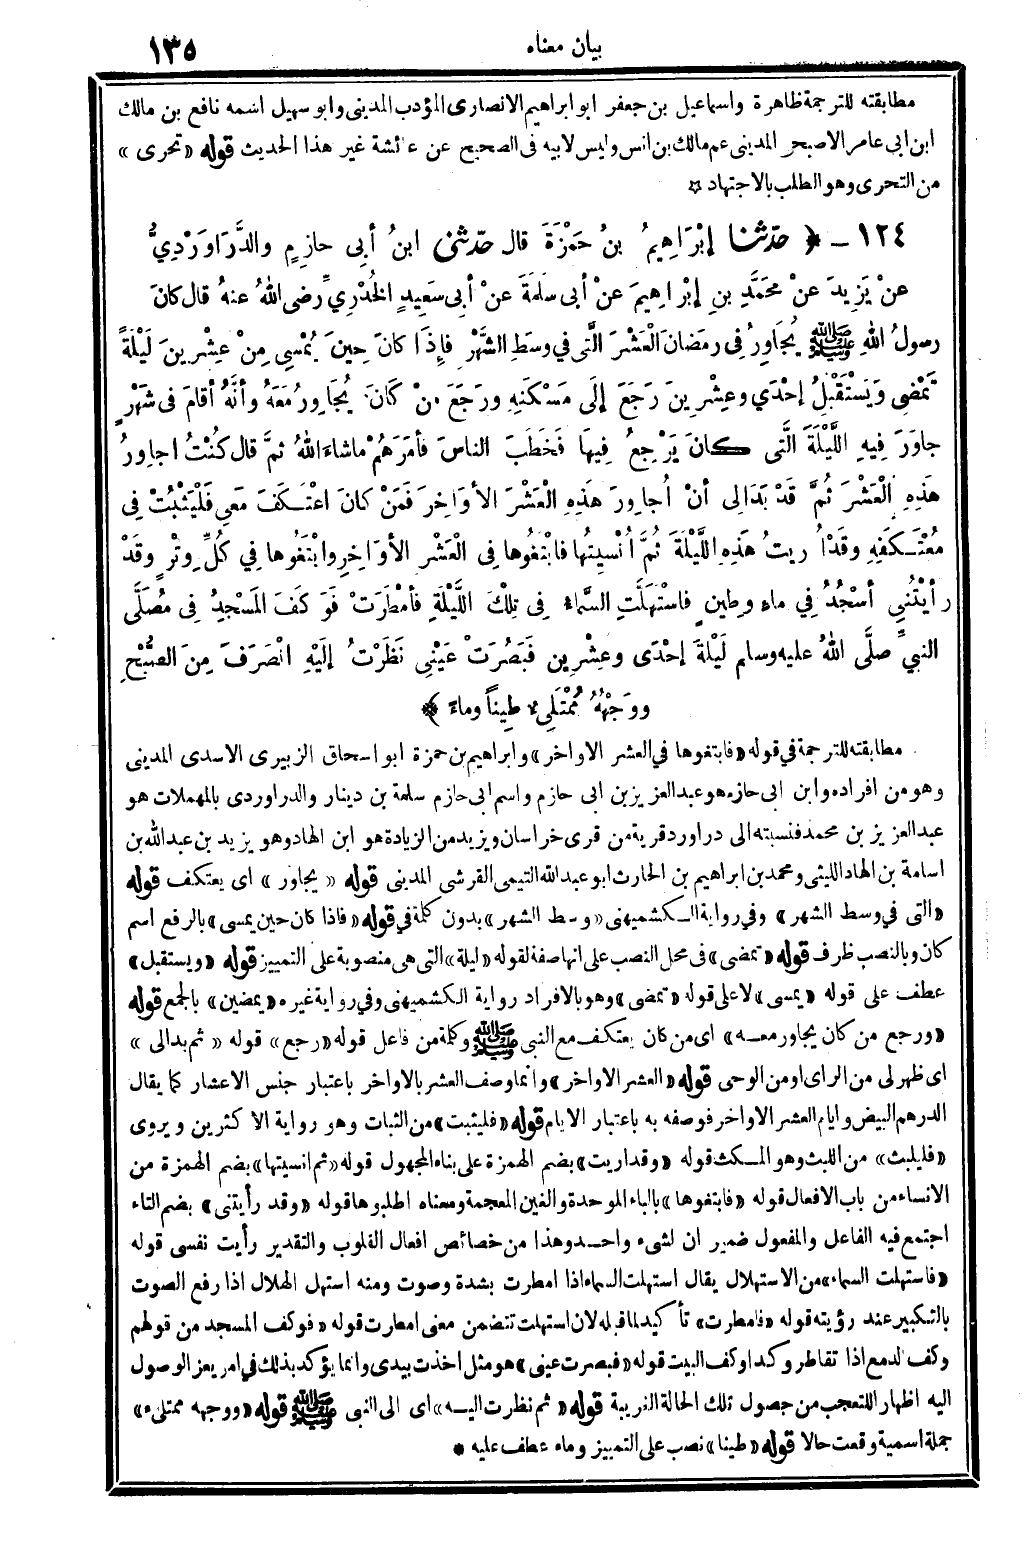 بيان معناه ١٣٥
مطابقته للترجمة ظاهرة واسماعيل بن جعفر ابو ابراهيم الانصارى المؤدب المدينى وابو سهيل اسمه نافع بن مالك
ابن ابى عامر الاصبحى المدينى عم مالك بن انس وليس لابيه فى الصحيح عن عائشة غير هذا الحديث قوله «تحرى»
من التحرى وهو الطلب بالاجتهاد ۞
١٢٤ ـ ﴿ حَدَّثَنَا إِبْرَاهِيمُ بنُ حَمْزَةَ قال حدّثنى ابنُ أبِى حازِمٍ والدَّرَاوَرْدِيُّ
عنْ يَزِيدَ عنْ مُحَمَّدِ بنِ إبْرَاهِيمَ عنْ أبى سَلَمَةَ عنْ أبى سَعِيدٍ الخُدْرِيِّ رضى اللهُ عنهُ قال كانَ
رسولُ اللهِ ﷺ يُجَاوِرُ فى رمَضانَ العَشْرَ الَّتى في وسَطِ الشَّهْرِ فإذَا كانَ حِينَ يُمْسِى مِنْ عِشْرِينَ لَيْلَةً
تَمْضِى ويَسْتَقْبِلُ إحْدَي وعِشْرِينَ رَجَعَ إلَى مَسْكَنِهِ ورَجَعَ مَنْ كَانَ يُجَاوِرُ مَعَهُ وأنَّهُ أقامَ فى شَهْرٍ
جاوَرَ فِيهِ اللَّيْلَةَ الَّتى كانَ يَرْجِعُ فِيهَا فَخَطَبَ الناسَ فأمَرَهُمْ ماشاءَ اللهُ ثمَّ قال كُنْتُ اجاوِرُ
هذِهِ العَشْرَ ثُمَّ قدْ بَدَا لِى أنْ أُجاوِرَ هَذِهِ العَشْرَ الأوَاخِرَ فَمَنْ كانَ اعْتَكَفَ مَعِى فَلْيَثْبُتْ فِى
مُعْتَكَفِهِ وقَدْ اُرِيتُ هَذِهِ اللَّيْلَةَ ثُمَّ اُنْسِيتُها فابْتَغُوها فِى العَشْرِ الأوَاخِرِ وابْتَغُوها فِي كُلِّ وِتْرٍ وقَدْ
رأيْتُنِي أسْجُدُ فِي ماءٍ وطِينٍ فاسْتَهَلَّتِ السَّماءُ فِى تِلْكَ اللَّيْلَةِ فأمْطَرَتْ فَوَكَفَ المَسْجِدُ فِى مُصَلَّى
النبيِّ صلَّى اللهُ عليه وسلم لَيْلَةَ إحْدَى وعِشْرِين فَبَصُرَتْ عَيْنِى نَظَرْتُ إلَيْهِ انْصَرَفَ مِنَ الصُّبْحِ
ووَجْهُهُ مُمْتَلِىءٌ طِيناً وماءً ﴾
مطابقته للترجمة في قوله «فابتغوها في العشر الاواخر» وابراهيم بن حمزة ابو اسحاق الزبيرى الاسدى المدينى
وهو من افراده وابن ابى حازم هو عبد العزيز بن ابى حازم واسم ابى حازم سلمة بن دينار والدراوردى بالمهملات هو
عبد العزيز بن محمد فنسبته الى دراورد قرية من قرى خراسان ويزيد من الزيادة هو ابن الهاد وهو يزيد بن عبد الله بن
اسامة بن الهاد الليثى ومحمد بن ابراهيم بن الحارث ابو عبد الله التيمى القرشى المدينى قوله «يجاور» اى يعتكف قوله
«التى في وسط الشهر» وفي رواية الكشميهنى «وسط الشهر» بدون كلمة في قوله «فاذا كان حين يمسى» بالرفع اسم
كان وبالنصب ظرف قوله «تمضى» فى محل النصب على انها صفة لقوله «ليلة» التى هى منصوبة على التمييز قوله «ويستقبل»
عطف على قوله «يمسى» لا على قوله «تمضى» وهو بالافراد رواية الكشميهنى وفي رواية غيره «يمضين» بالجمع قوله
«ورجع من كان يجاور معه» اى من كان يعتكف مع النبى ﷺ وكلمة من فاعل قوله «رجع» قوله «ثم بدالى»
اى ظهر لى من الراى او من الوحى قوله «العشر الاواخر» وانما وصف العشر بالاواخر باعتبار جنس الاعشار كما يقال
الدرهم البيض وايام العشر الاواخر فوصفه به باعتبار الايام قوله «فليثبت» من الثبات وهو رواية الاكثرين ويروى
«فليلبث» من اللبث وهو المكث قوله «وقد اريت» بضم الهمزة على بناء المجهول قوله «ثم انسيتها» بضم الهمزة من
الانساء من باب الافعال قوله «فابتغوها» بالباء الموحدة والغين المعجمة ومعناه اطلبوها قوله «وقد رأيتنى» بضم التاء
اجتمع فيه الفاعل والمفعول ضمير ان لشىء واحد وهذا من خصائص افعال القلوب والتقدير رأيت نفسى قوله
«فاستهلت السماء» من الاستهلال يقال استهلت السماء اذا امطرت بشدة وصوت ومنه استهل الهلال اذا رفع الصوت
بالتكبير عند رؤيته قوله «فامطرت» تأكيد لما قبله لان استهلت تتضمن معنى امطرت قوله «فوكف المسجد من قولهم
وكف الدمع اذا تقاطر وكذا وكف البيت قوله «فبصرت عينى» هو مثل اخذت بيدى وانما يؤكد بذلك في امر يعز الوصول
اليه اظهار اللتعجب من حصول تلك الحالة الغريبة قوله «ثم نظرت اليه» اى الى النبى ﷺ قوله «ووجهه ممتلىء»
جملة اسمية وقعت حالا قوله «طينا» نصب على التمييز وماء عطف عليه *